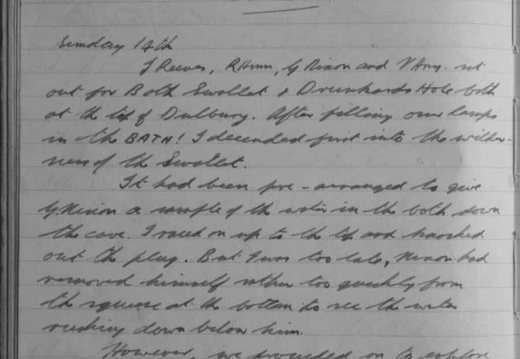 Sunday 14th
J Reeves, R Hunn, G Nixon and V Amy. set
out for Bath Swallet & Drunkards Hole both
at the top of Dulbury. After filling our lamps
in the BATH! I decended first into the wilder-
ness of the Swallet.
It had been pre-arranged to give
G Nixon a sample of the water in the bath down
the cave. I raced on up to the top and knocked
out the plug. But I was too late, Nixon had
removed himself rather too quickly from
the squeeze at the bottom to see the water
rushing down below him.
However, we proceeded on to explore